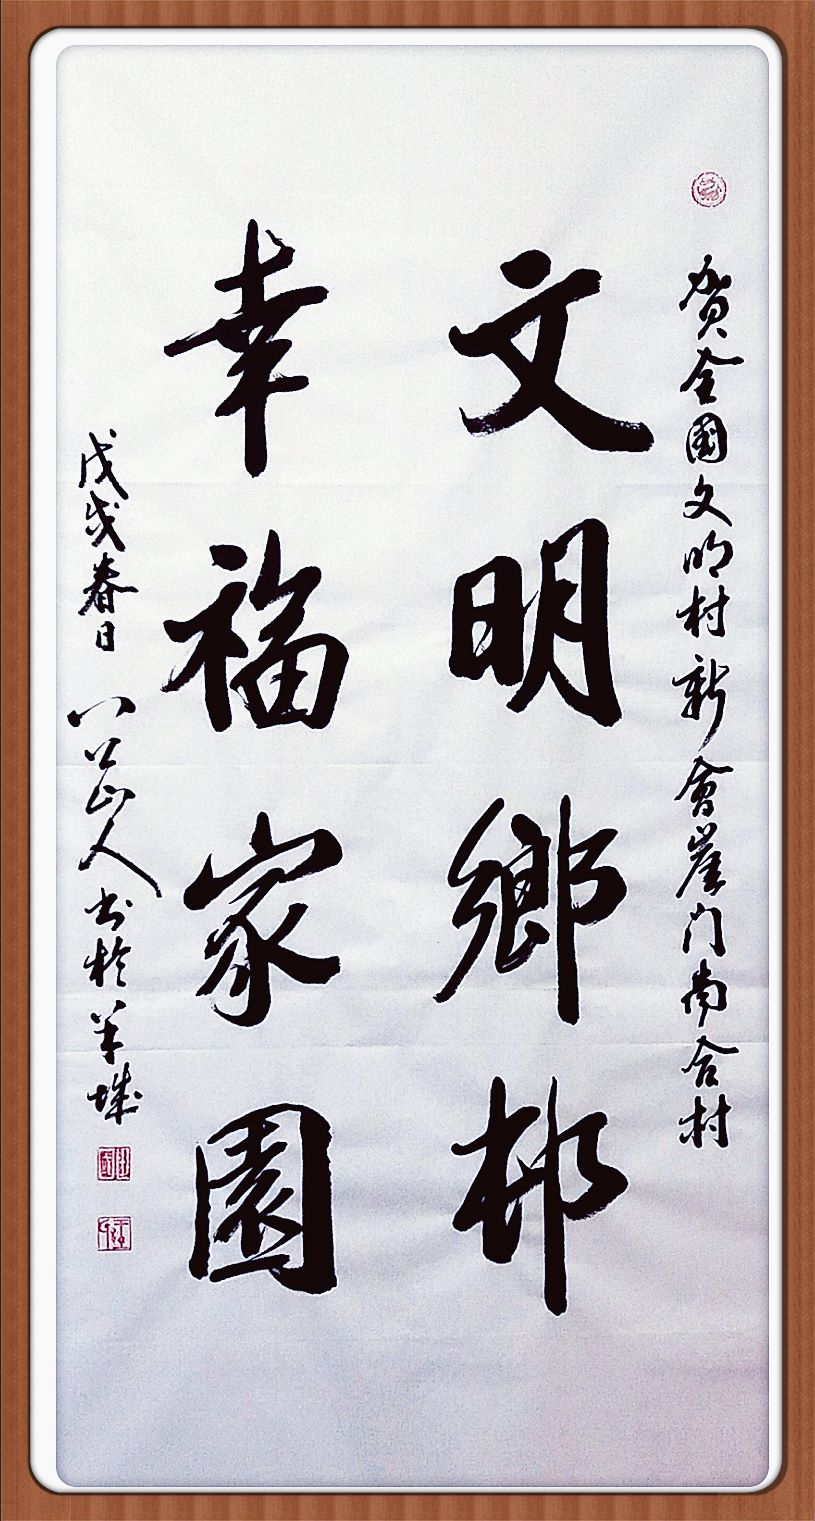 賀全國文明村新會崖门南合村
文明鄉邨
幸福家園
戊戌春日
八公山人书於羊城